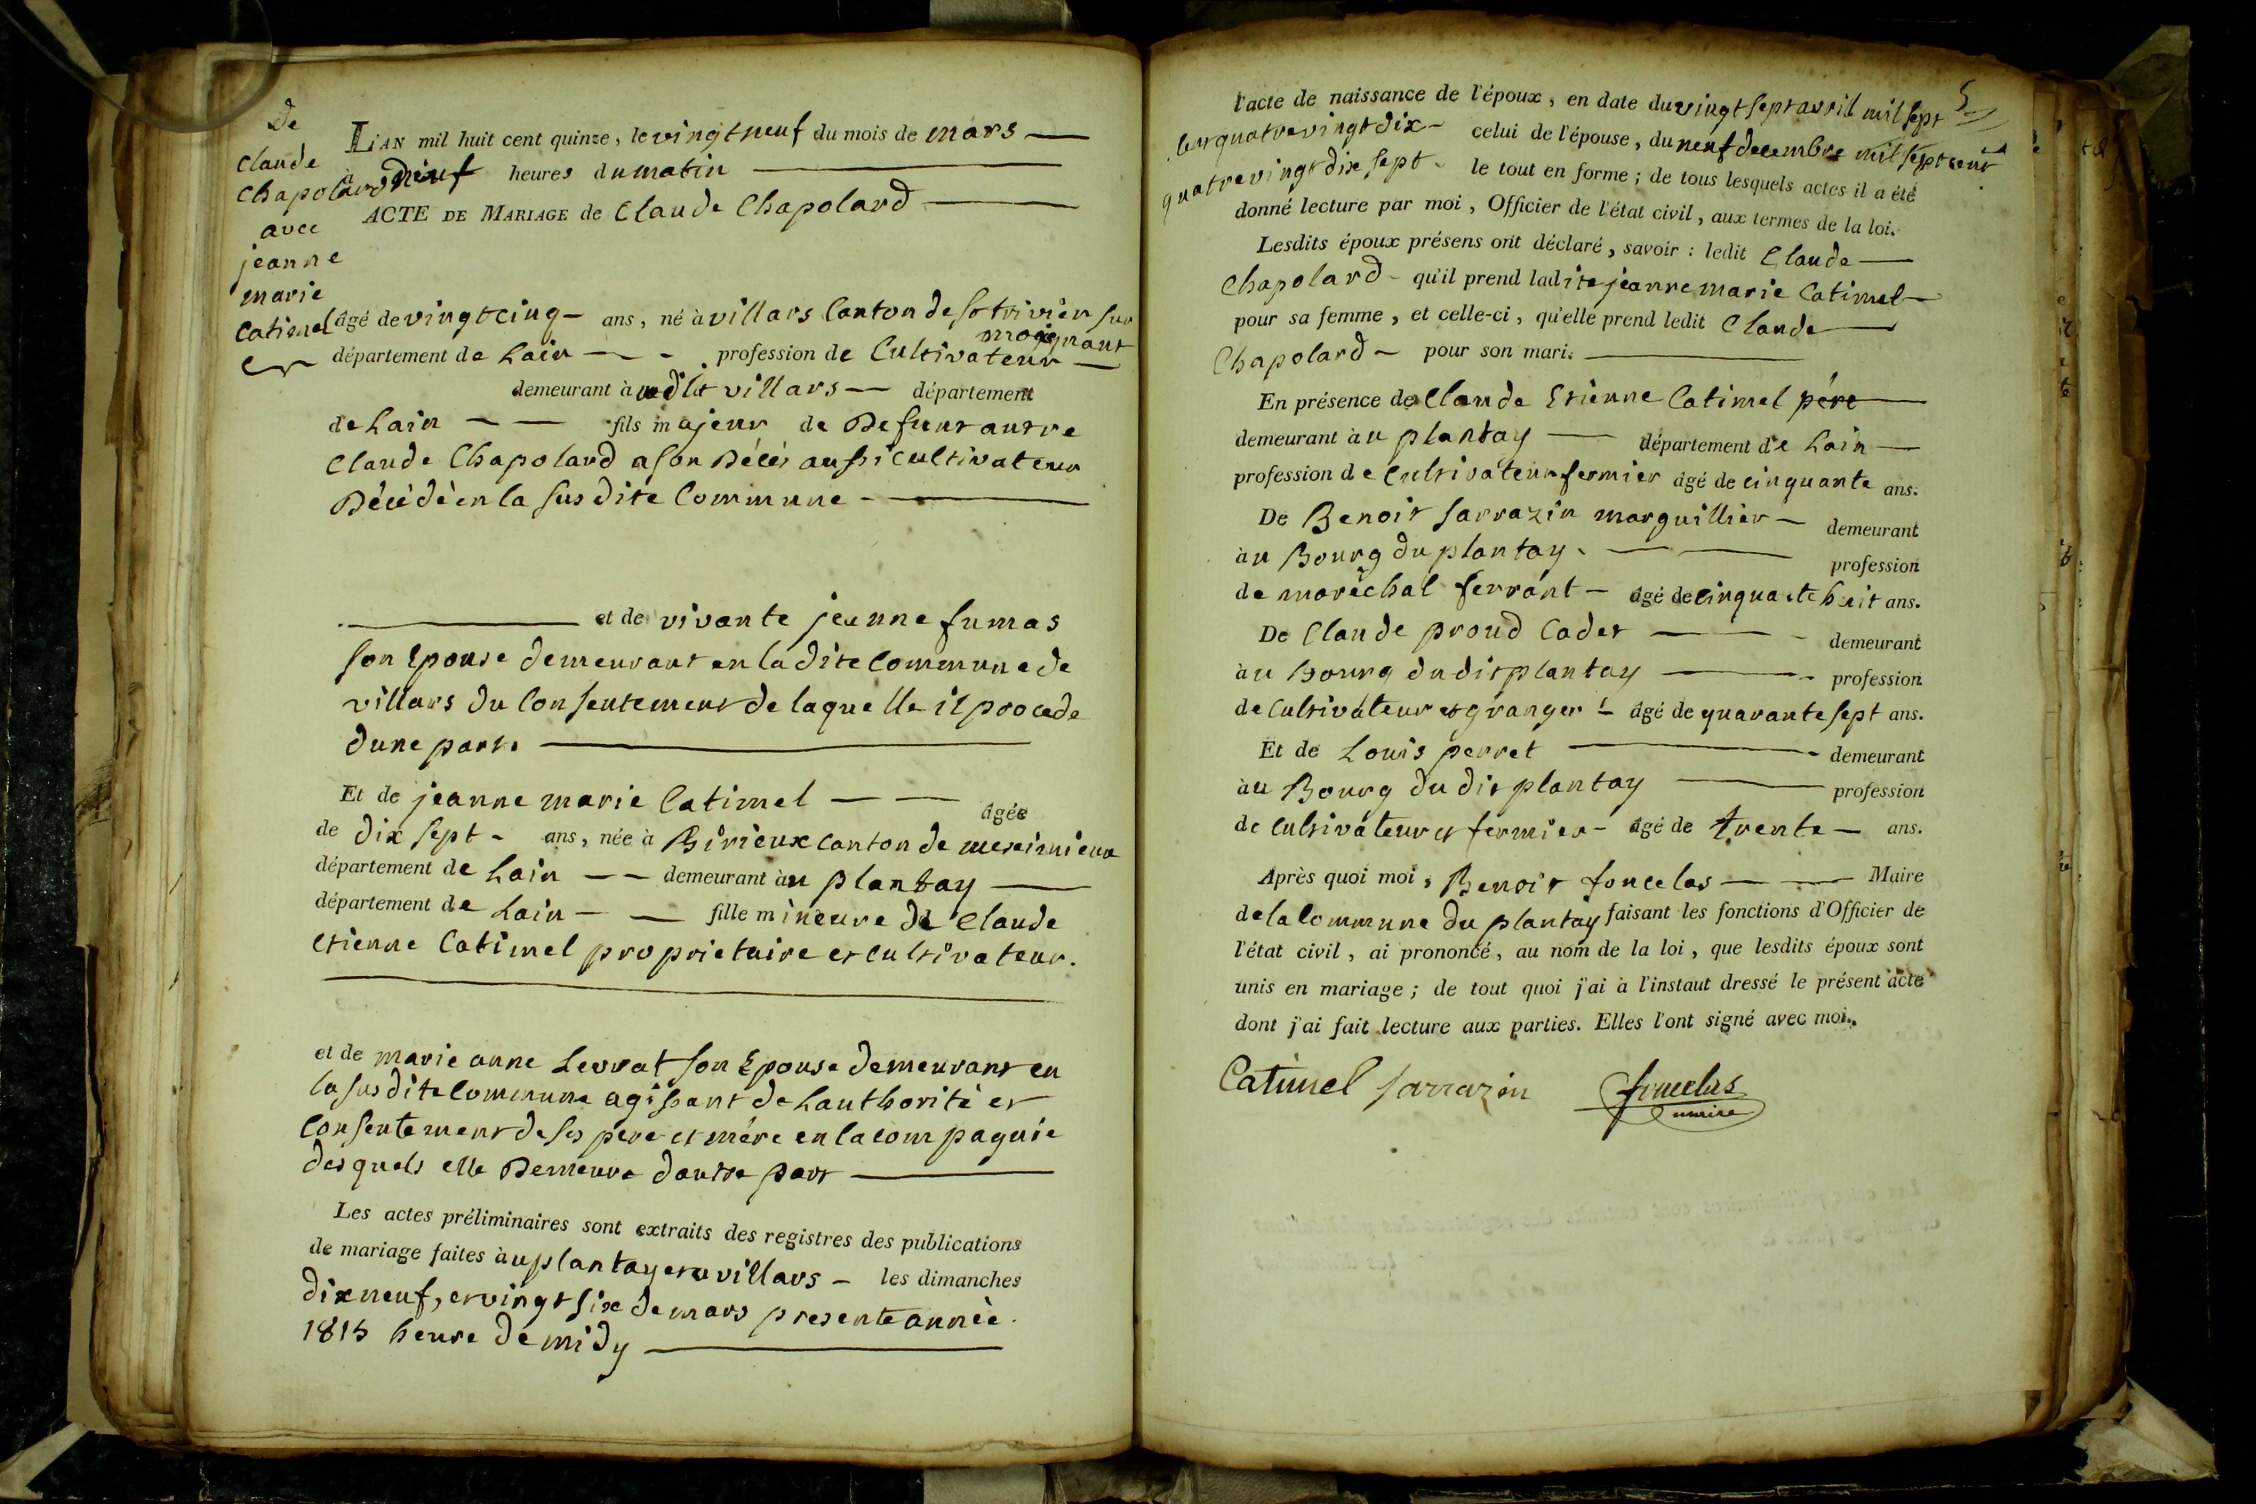 De
Claude
Chapolard
avec
jeanne
marie
Catimel
L'AN mil huit cent quinze, le vingt neuf du mois de mars
à neuf heures du matin
ACTE DE MARIAGE de Claude Chapolard
âgé de vingt cinq ans, né à villars Canton de St trivier sur
moignant
département de Lain profession de Cultivateur
demeurant à udit villars département
de Lain fils majeur de Defunt autre
Claude Chapolard a son Décés aussi cultivateur
Décédé en la sus dite Commune
et de vivante jeanne fumas
son Epouse demeurant en la dite Commune de
villars du Consentement de laquelle il procede
dune part.
Et de jeanne marie Catimel âgée
de dix sept ans, née à Birieux canton de meximieux
département de Lain demeurant àu plantay
département de Lain fille mineure de Claude
etienne Catimel proprietaire et cultivateur.
et de marie anne Levrat son Epouse demeurant en
la sus dite Commune agissant de Lauthorité et
Consentement de ses pere et mére en la compagnie
desquels elle Demeure dautre part
Les actes préliminaires sont extraits des registres des publications
de mariage faites àu plantay et a villars les dimanches
dix neuf, et vingt six de mars presente année
1815 heure de midy
5
l'acte de naissance de l'époux, en date du vingt sept avril mil sept
cent quatre vingt dix celui de l'épouse, du neuf decembre mil sept cent
quatre vingt dix sept le tout en forme; de tous lesquels actes il a été
donné lecture par moi, Officier de l'état civil, aux termes de la loi.
Lesdits époux présens ont déclaré, savoir : ledit Claude
Chapolard qu'il prend ladite jeanne marie Catimel
pour sa femme, et celle-ci, qu'elle prend ledit Claude
Chapolard pour son mari.
En présence de Claude Etienne Catimel pére
demeurant àu plantay département de Lain
profession de Cultivateur fermier âgé de cinquante ans.
De Benoit Sarrazin marguillier demeurant
àu Bourg du plantay profession
de maréchal ferrant âgé de cinquante huit ans.
De Claude proud Cadet demeurant
àu Bourg du dit plantay profession
de Cultivateur et granger âgé de quarante sept ans.
Et de Louis perret demeurant
àu Bourg du dit plantay profession
de cultivateur et fermier âgé de trente ans.
Après quoi moi, Benoit foncelas Maire
de la Commune du plantay faisant les fonctions d'Officier de
l'état civil, ai prononcé, au nom de la loi, que lesdits époux sont
unis en mariage; de tout quoi j'ai à l'instaut dressé le présent acte
dont j'ai fait lecture aux parties. Elles l'ont signé avec moi.
Catimel Sarrazin foncelas
maire